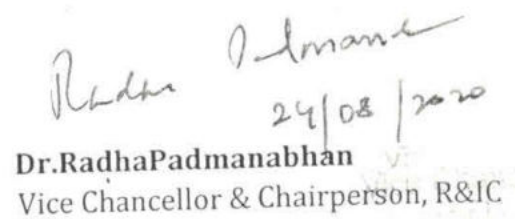 Radha Padmanabh
24/08/2020
Dr.RadhaPadmanabhan
Vice Chancellor & Chairperson, R&IC